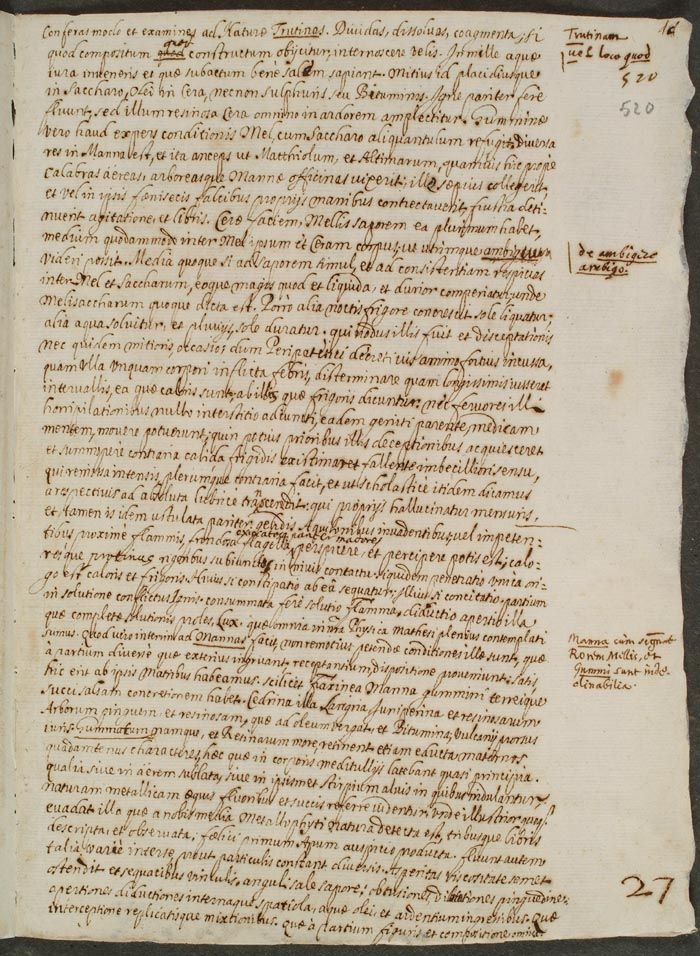 Conferas modo et examines ad Naturæ Trutinas. Diuidas, dissoluas, coagmenta, si
quod compositum quod quæ constructum obijcitur, internoscere velis. In mille aquæ
iura inueneris et quæ subactum bene salem sapiant. Mitius id placidiusque
in Saccharo, Olei in Cera, necnon Sulphuris seu Bituminis. Igne pariter fere
fluunt, sed illum resinosa Cera omnino in ardorem amplectitur. Gumminæ
vero haud expers conditionis Mel, cum Saccharo aliquantulum refugit, diuersa
res in Manna est, et ita anceps ut Matthiolum, et Altimarum, quamuis hic prope
Calabras aereas, arboreasque Mannæ officinas vixerit, ille sæpius collegerit,
et vel in ipsis fænisecis falcibus proprijs manibus contrectauerit, frustra deti-
nuerit agitatione, et libris. Ceræ faciem, Mellis saporem ea plurimum habet,
medium quodammodo inter Mel ipsum et Ceram corpus, ut utrimque
videri possit. Media quoque si ad saporem simul, et ad consistentiam respicias
inter Mel et Saccharum, eoque magis quod et liquida, et durior comperiatur, unde
Melisaccharum quoque dicta est. Porro alia noctis frigore concrescit sole liquatur,
alia aqua soluitur, et pluuijs, sole duratur. qui nodus illis fuit et disceptationis
nec quidem mitioris occasio, dum Peripateti decreti vis animo fortius incussa,
quam ulla unquam corpori inflicta febris, disterminare quam longissimis iusserit
interuallis, ea quæ caloris sunt, ab illis quæ frigoris dicuntur. nec feruores illi
horripilationibus nullo interstitio adiuncti, eadem geniti parente, medicam
mentem, mouere potuerunt, quin potius prioribus illis deceptionibus acquiesceret
et summopere contraria calida frigidis existimaret fallente imbecilliori sensu,
qui remissa intensis plerumque contraria facit, et ut scholastice itidem dicamus
a respectiuis ad absoluta lubrice transcendit, qui proprijs hallucinatur mensuris,
et tamen is idem ustulata pariter gelidis Aquilonibus inuadentibus, vel impeten-
tibus proxime flammis, frondosa flagella perspicere, et percipere potis est, calo-
resque protinus rigoribus subeuntes in niuis contactu. siquidem penetratio omica ori-
go est caloris et frigoris. Huius si constipatio ab ea sequatur. Illius si concitatio partium
in solutione conflictus Ignis. consummata fere solutio flamma, diductio aperto illa
quæ complete solutionis proles, Lux. quæ omnia in nostra Physica Mathesi plenius contemplati
sumus. Quod vero interim ad Mannas facit, non remotius petendæ conditiones ille sunt, quæ
a partium diuerse quæ exterius ingruant, receptantium, dispositione proueniunt. satis
hic erit ab ipsis Matribus habeamus. scilicet Fraxinea Manna gummini terreique
succi salsam concretionem habet. Cedrina illa Langna Juniperina et resinosarum
Arborum pinguem et resinosam, quæ ad oleum vergat, et Bitumina, Vulcanij prorsus
iuris. Gummatum namque, et Resinarum more, retinent etiam educta maternos
quadamtenus characteres, hæc quæ in corporis meditullijs latebant quasi principia.
qualia siue in aerem sublata, siue in ipsismet stirpium aluis in quibus indulantur,
naturam metallicam æquis fluoribus et succis referre videntis. unde illustrior quæsi
euadat illa quæ a nobis media Metallophyti natura detecta est, tribusque libris
descripta, et obseruata, fælici primum Apum auspicio producta. fluunt autem
talia varie inter se, veluti particulis constant diuersis. Asperitas viscositate semet
ostendit et sequacibus vinculis, anguli sale sapore, obtusiones, dilatationes pinguedine,
apertiones diductiones internaque spatiola, aquæ olei et ardentium impressibus. Quæ
interceptione replicatisque mixtionibus. Quæ a clartium figuris et compositione omnia
Trutinam
vel loco quod
520
520
de ambigere
ambigo.
Manna cum segnat
Rorem Mellis, et
gummi sunt inde
clinabilia.
27